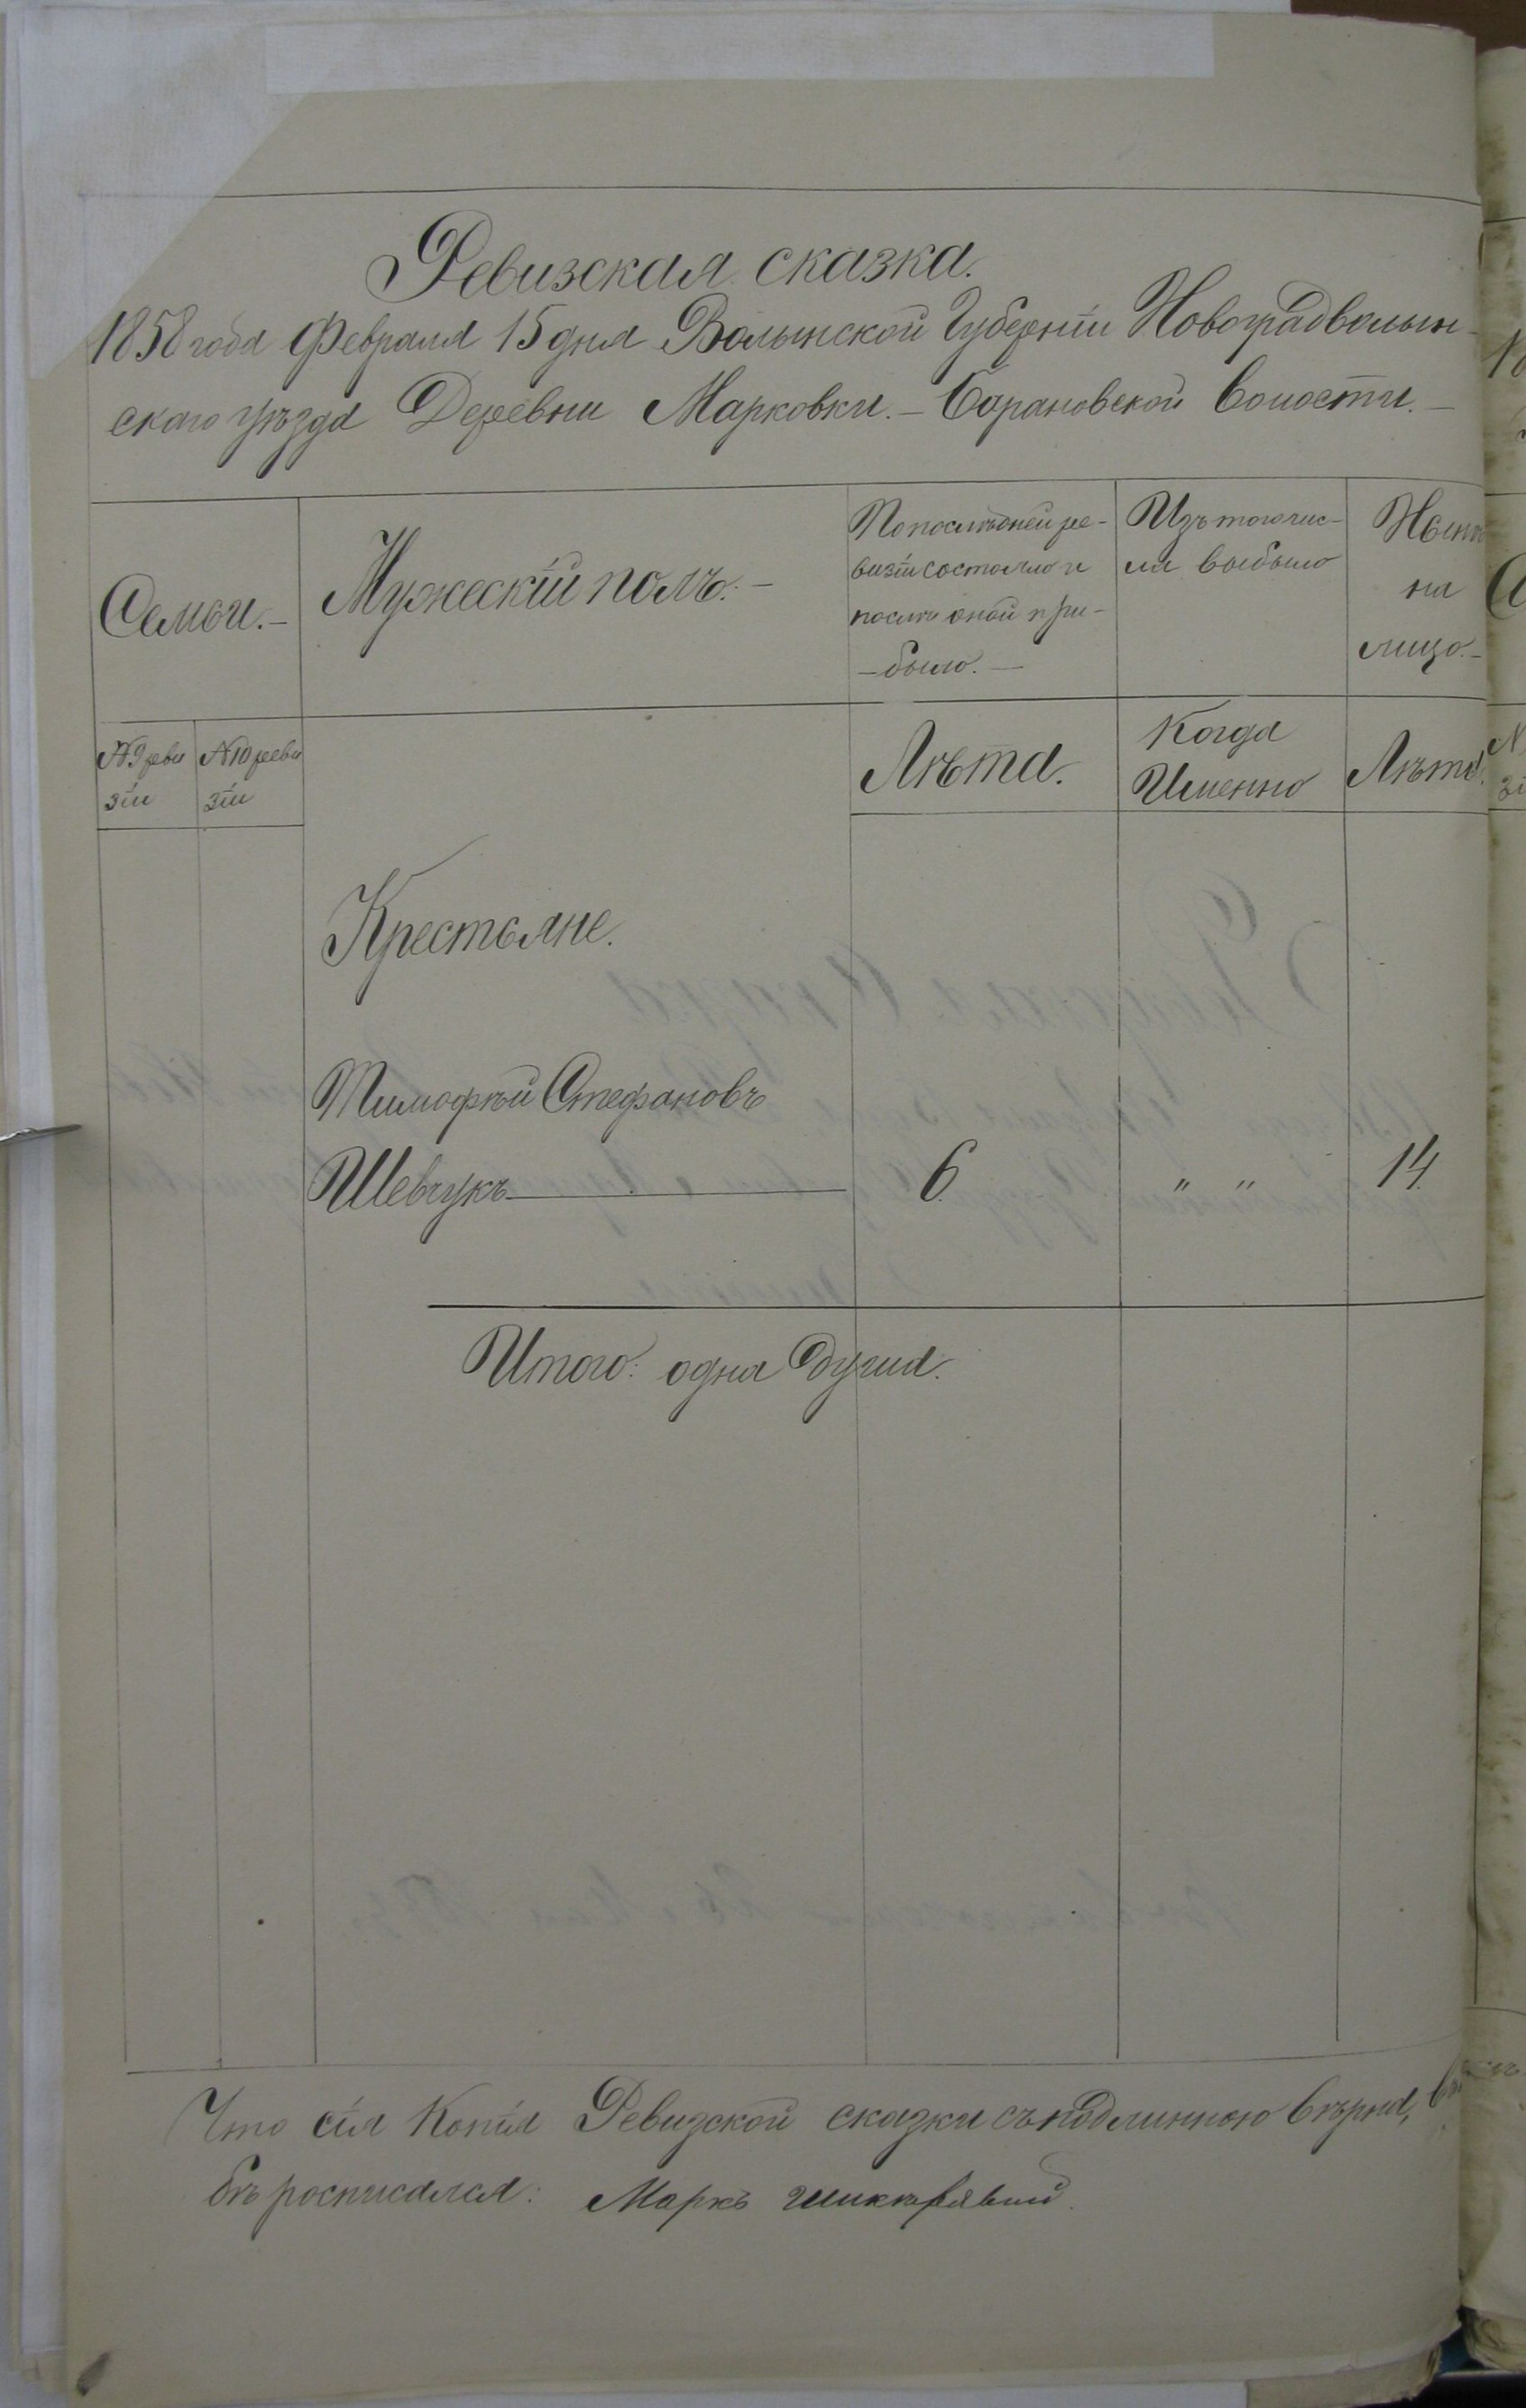 Ревизская сказка.
1858 года Февраля 15 дня Волынской Губерніи Новоградволын-
скаго уѣзда Деревни Марковки. – Барановской Волости. –
Семьи. –
Мужескій полъ. –
По послѣдней ре-
визіи состояло и
послѣ оной при-
– было. –
Изъ того чис-
ла выбыло
Нынѣ
на
лицо. –
№ 9 реви
зіи
№ 10 реви
зіи
Лѣта.
Когда
Именно
Лѣта.
Крестьяне.
Тимофѣй Стефановъ
Шевчукъ 6. " " 14.
Итого: одна душа.
Что сія Копія Ревизской сказки съ подлинною вѣрна,
бѣ росписался: Маркъ